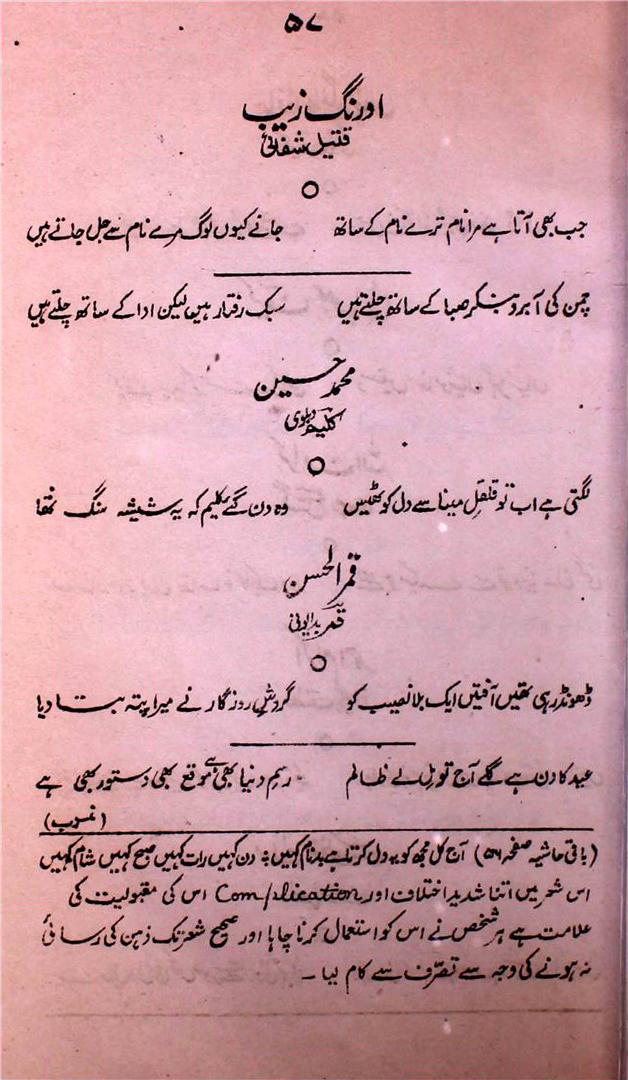 ۵۷
اورنگ زیب
قتیل شفائی
جب بھی آتا ہے مرا نام ترے نام کے ساتھ جانے کیوں لوگ مرے نام سے جل جاتے ہیں
چمن کی آبرو بنکر صبا کے ساتھ چلتے ہیں سبک رفتار ہیں لیکن ادا کے ساتھ چلتے ہیں
محمد حسین
کلیم دہلوی
لگتی ہے اب تو قلقلِ مینا سے دل کو ٹھیس وہ دن گئے کلیم کہ یہ شیشہ سنگ تھا
قمر الحسن
قمر بدایونی
ڈھونڈ رہی تھیں آفتیں ایک بلا نصیب کو گردشِ روزگار نے میرا پتہ بتا دیا
عید کا دن ہے گلے آج تو مل لے ظالم - رسمِ دنیا بھی ہے موقع بھی دستور بھی ہے
(باقی حاشیہ صفحہ ۵۶) آج کل مجھ کو یہ دل کرتا ہے بدنام کہیں ؛ دن کہیں رات کہیں صبح کہیں شام کہیں
اس شعر میں اتنا شدید اختلاف اور Complication اس کی مقبولیت کی
علامت ہے ہر شخص نے اس کو استعمال کرنا چاہا اور صحیح شعر تک ذہن کی رسائی
نہ ہونے کی وجہ سے تصرّف سے کام لیا ۔